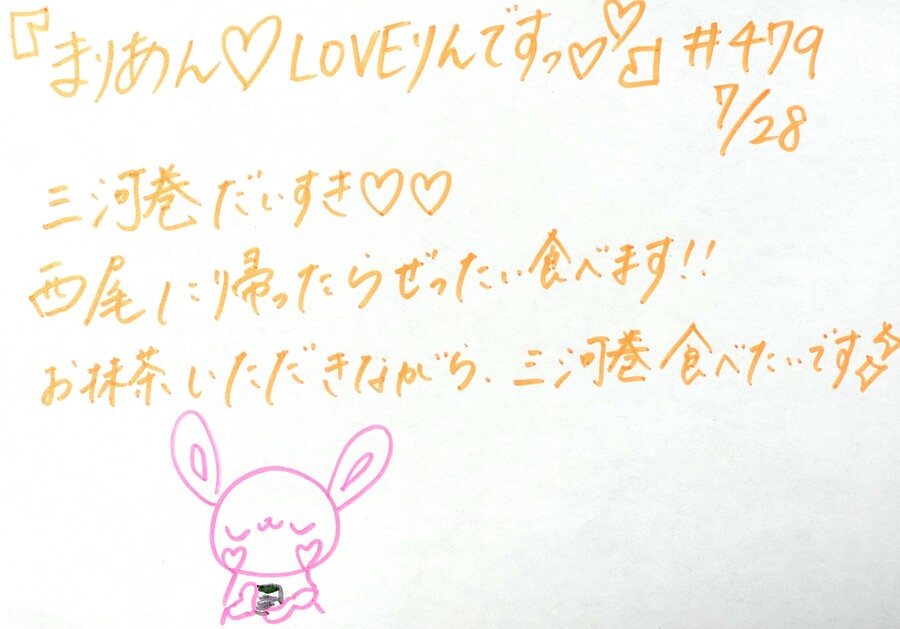 『まりあん♡LOVEりんですっ♡♡』#479
7/28
三河巻だいすき♡♡
西尾に帰ったらぜったい食べます!!
お抹茶いただきながら、三河巻食べたいです✨